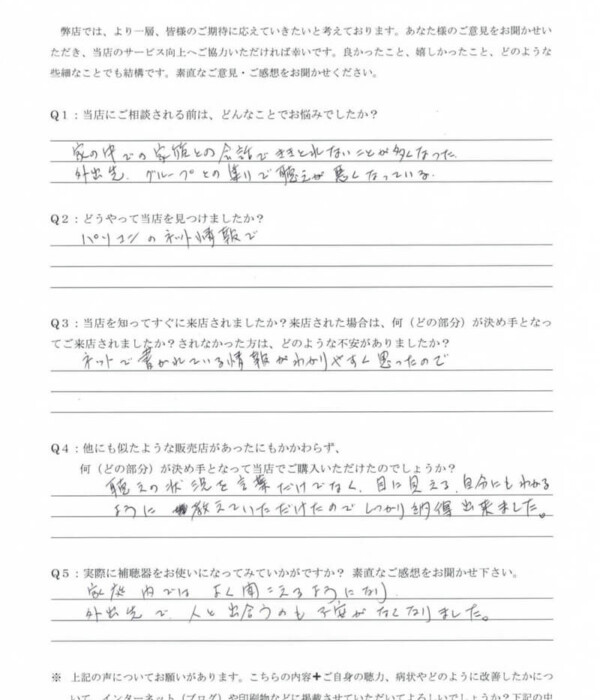 弊店では、より一層、皆様のご期待に応えていきたいと考えております。あなた様のご意見をお聞かせい
ただき、当店のサービス向上へご協力いただければ幸いです。良かったこと、嬉しかったこと、どのような
些細なことでも結構です。素直なご意見・ご感想をお聞かせください。
Q1：当店にご相談される前は、どんなことでお悩みでしたか？
家の中での家族との会話でききとれないことが多くなった
外出先、グループとの集りで聴えが悪くなっている。
Q2：どうやって当店を見つけましたか？
パソコンのネット情報で
Q3：当店を知ってすぐに来店されましたか？来店された場合は、何（どの部分）が決め手となっ
てご来店されましたか？されなかった方は、どのような不安がありましたか？
ネットで書かれている情報がわかりやすく思ったので
Q4：他にも似たような販売店があったにもかかわらず、
何（どの部分）が決め手となって当店でご購入いただけたのでしょうか？
聴えの状況を言葉だけでなく、目に見える、自分にもわかる
ように教えていただけたのでしっかり納得出来ました。
Q5：実際に補聴器をお使いになってみていかがですか？ 素直なご感想をお聞かせ下さい。
家族内ではよく聞こえるようになり
外出先で、人と出合うのも不安がなくなりました。
※ 上記の声についてお願いがあります。こちらの内容＋ご自身の聴力、病状やどのように改善したかにつ
いて、インターネット（ブログ）や印刷物などに掲載させていただいてよろしいでしょうか？下記の中